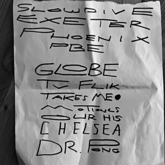 SLOWDIVE
EXETER
PHOENIX
PBE
GLOBE
TV FLIK
TAKES ME
OUR HIS
CHELSEA
DR. PONG